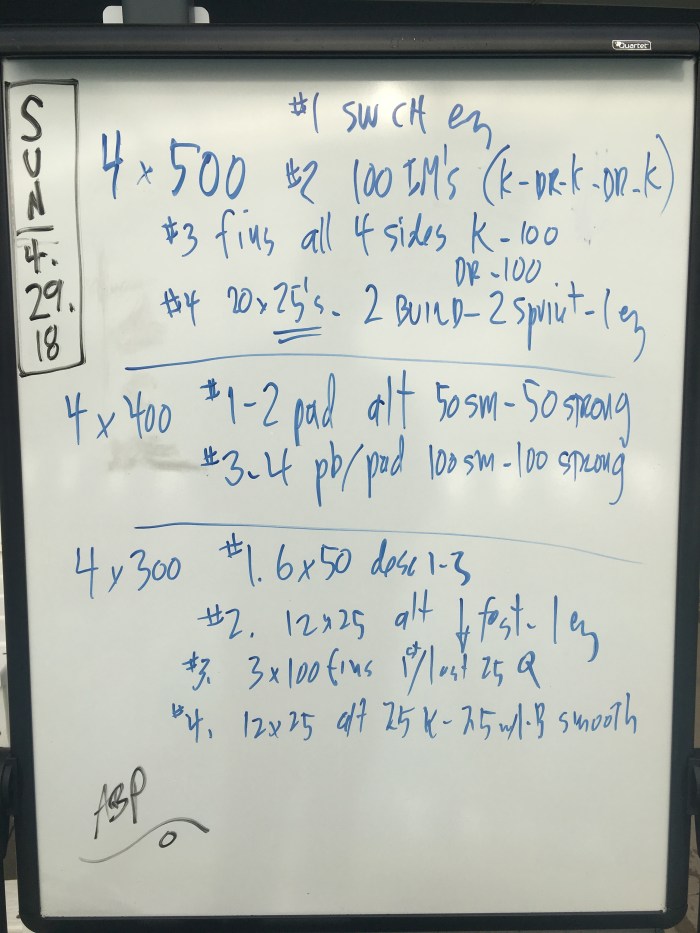 Quartet
SUN
4.
29.
18
#1 SWCH ez
4 x 500 #2 100 IM's (K-DR-K-DR-K)
#3 fins all 4 sides K-100
DR-100
#4 20x25's - 2 BUILD - 2 sprint - 1 ez
4 x 400 #1-2 pad alt 50 sm - 50 strong
#3-4 pb/pad 100 sm - 100 strong
4 x 300 #1. 6x50 desc 1-3
#2. 12x25 alt ↓ fast - 1 ez
#3. 3x100 fins 1st/last 25 Q
#4. 12x25 alt 25 K - 25 smooth
ABP